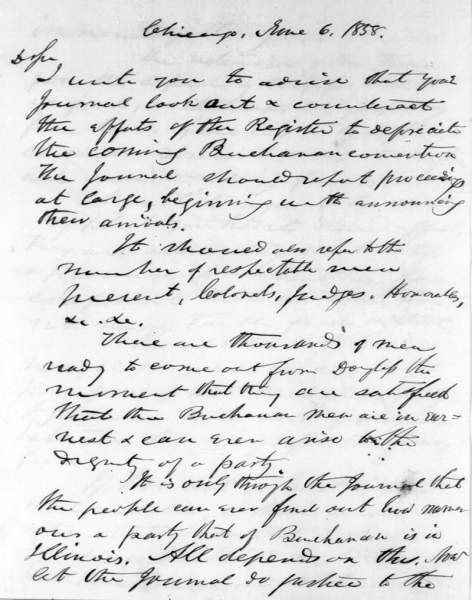 Chicago, June 6. 1858.
D Sir
I write you to advise that your
Journal look out & counteract
the efforts of the Register to depreciate
the coming Buchanan convention
The Journal should report proceedings
at large, beginning with announcing
their arrivals.
It should also refer to the
number of respectable men
present, Colonels, Judges. Honorables,
&c. &c.
There are thousands of men
ready to come out from Douglass the
moment that they are satisfied
that the Buchanan men are in ear-
nest & can ever arise to the
dignity of a party
It is only through the Journal that
the people can ever find out how numer-
ous a party that of Buchanan is in
Illinois. All depends on this. Now
let the Journal do justice to the